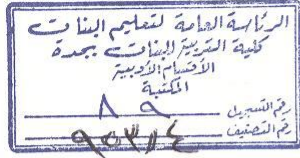 الرئاسة العامة لتعليم البنات
كلية التربية للبنات بجدة
الأقسام الأدبية
المكتبة
رقم التسجيل ٨٩
رقم التصنيف